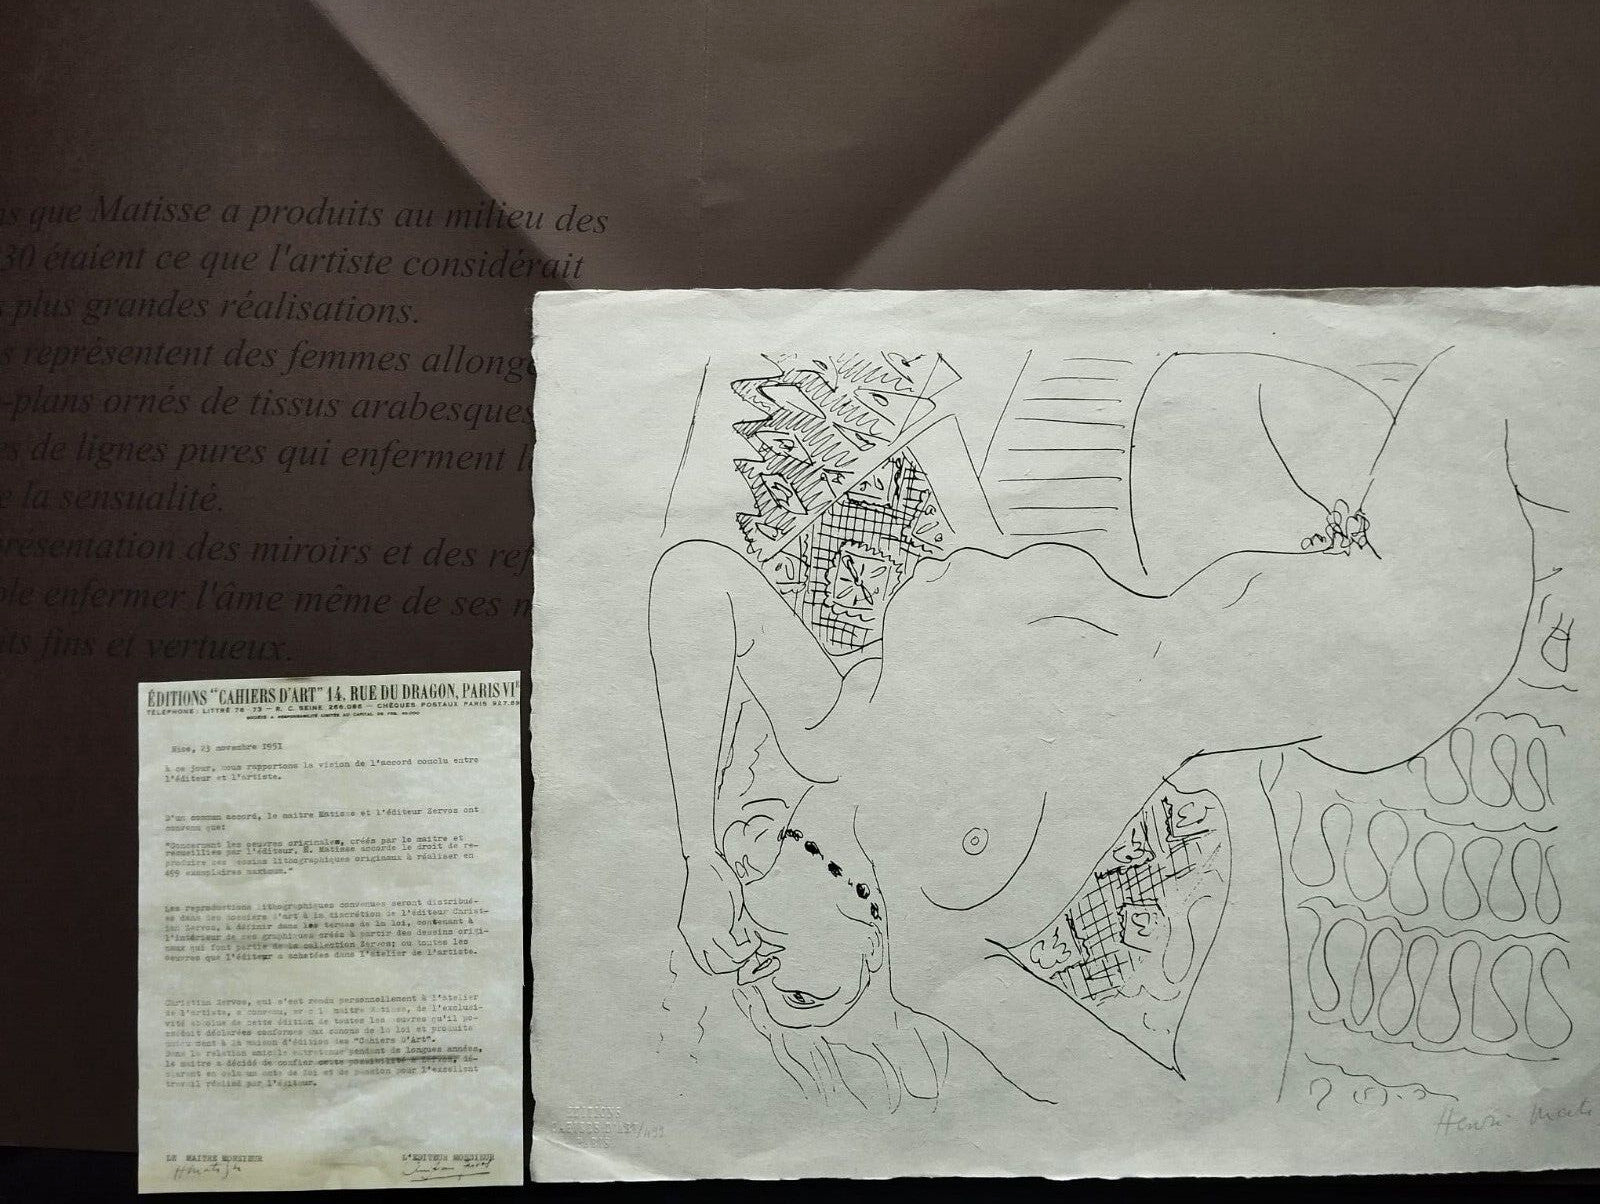 ns que Matisse a produits au milieu des
30 étaient ce que l'artiste considérait
s plus grandes réalisations.
s représentent des femmes allongé
-plans ornés de tissus arabesques
es de lignes pures qui enferment l
e la sensualité.
présentation des miroirs et des ref
ble enfermer l'âme même de ses m
its fins et vertueux.
ÉDITIONS "CAHIERS D'ART" 14, RUE DU DRAGON, PARIS VIe
TÉLÉPHONE: LITTRÉ 76-73 — R. C. SEINE 266.086 — CHÈQUES POSTAUX PARIS 927.69
SOCIÉTÉ A RESPONSABILITÉ LIMITÉE AU CAPITAL DE FRS.
Nice, 23 novembre 1951
A ce jour, nous rapportons la vision de l'accord conclu entre
l'éditeur et l'artiste.
D'un commun accord, le maitre Matisse et l'éditeur Zervos ont
convenu que:
"Concernant les oeuvres originales, créés par le maitre et
recueillies par l'éditeur, H. Matisse accorde le droit de re-
produire ces dessins lithographiques originaux à réaliser en
499 exemplaires maximum."
Les reproductions lithographiques convenues seront distribué-
es dans des dossiers d'art à la discrétion de l'éditeur Christ-
ian Zervos, à définir dans les termes de la loi, contenant à
l'intérieur de ces graphiques créés à partir des dessins origi-
naux qui font partie de la collection Zervos; ou toutes les
oeuvres que l'éditeur a achetées dans l'atelier de l'artiste.
Christian Zervos, qui s'est rendu personnellement à l'atelier
de l'artiste, a convenu, avec le maitre Matisse, de l'exclusi-
vité absolue de cette édition de toutes les oeuvres qu'il po-
ssédait déclarées conformes aux canons de la loi et produite
ment à la maison d'édition des "Cahiers D'Art".
Dans la relation amicale entretenue pendant de longues années,
le maitre a décidé de confier cette possibilité à Zervos, dé-
clarant en cela un acte de foi et de passion pour l'excellent
travail réalisé par l'éditeur.
LE MAITRE MONSIEUR
L'EDITEUR MONSIEUR
EDITIONS
CAHIERS D'ART
PARIS
/499
Henri Mati